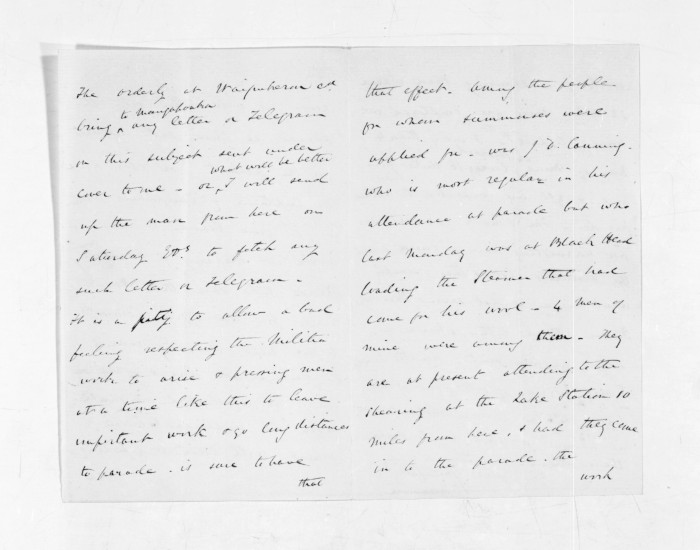 The orderly at Waipukurau cd
to Mangakuka
bring any letter or Telegram
on this subject sent under
what will be better
cover to me - or, I will send
up the man from here on
Saturday Evg to fetch any
such letter or Telegram -
it is a pity to allow a bad
feeling respecting the Militia
work to arise & pressing men
at a time like this to leave
important work & go long distances
to parade - is sure to have
that
that effect - Among the people
for whom summonses were
applied for - was J D. Canning -
who is most regular in his
attendance at parade but who
last Monday was at Black Head
loading the Steamer that had
come for his wool - 4 men of
mine were among them - They
are at present attending to the
shearing at the Lake Station 10
miles from here, & had they come
in to the parade - the
work